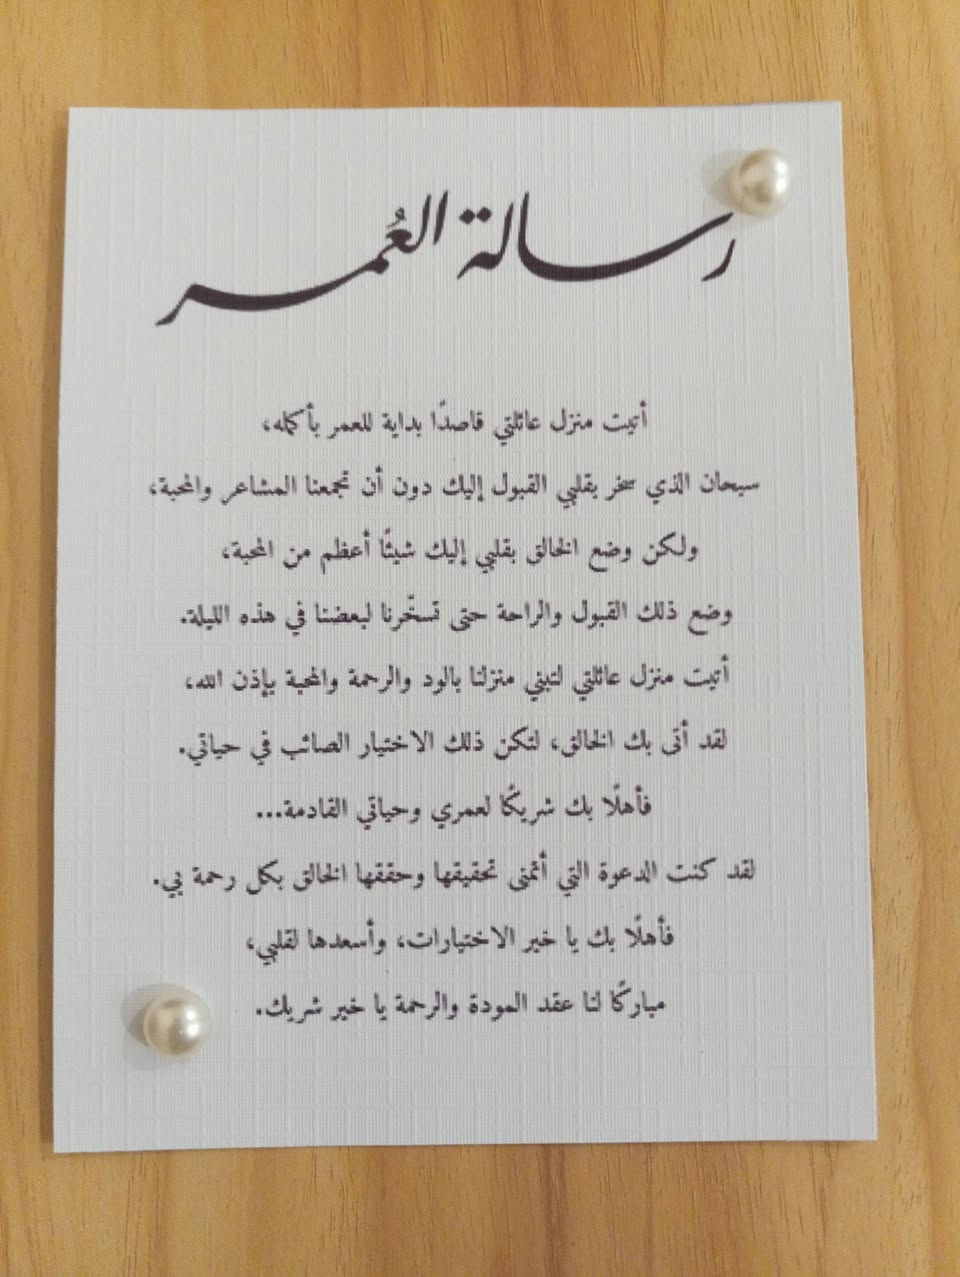 رسالة العُمر
أتيت منزل عائلتي قاصدًا بداية للعمر بأكمله،
سبحان الذي سخر بقلبي القبول إليك دون أن تجمعنا المشاعر والمحبة،
ولكن وضع الخالق بقلبي إليك شيئًا أعظم من المحبة،
وضع ذلك القبول والراحة حتى تسخّرنا لبعضنا في هذه الليلة.
أتيت منزل عائلتي لتبني منزلنا بالود والرحمة والمحبة بإذن الله،
لقد أتى بك الخالق، لتكن ذلك الاختيار الصائب في حياتي.
فأهلًا بك شريكًا لعمري وحياتي القادمة...
لقد كنت الدعوة التي أتمنى تحقيقها وحققها الخالق بكل رحمة بي.
فأهلًا بك يا خير الاختيارات، وأسعدها لقلبي،
مباركًا لنا عقد المودة والرحمة يا خير شريك.